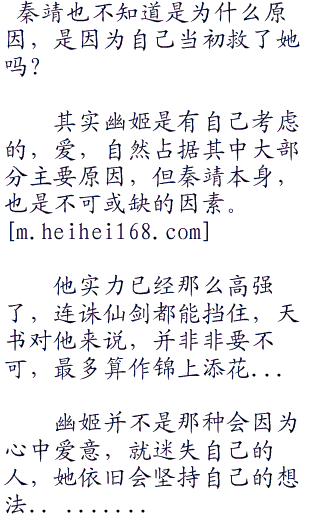 秦靖也不知道是为什么原
因，是因为自己当初救了她
吗？
其实幽姬是有自己考虑
的，爱，自然占据其中大部
分主要原因，但秦靖本身，
也是不可或缺的因素。
[m.heihei168.com]
他实力已经那么高强
了，连诛仙剑都能挡住，天
书对他来说，并非非要不
可，最多算作锦上添花...
幽姬并不是那种会因为
心中爱意，就迷失自己的
人，她依旧会坚持自己的想
法.. .......